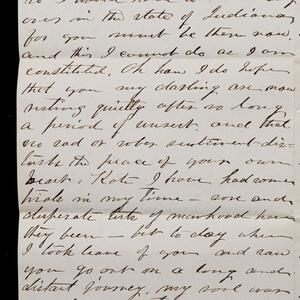 over in the state of Indiana
for you must be there now.
and this I cannot do as I am
constituted. Oh how I do hope
that you my darling are now
resting quietly after so long
a period of unrest. and that
no sad or sober sentiment dis-
turbs the peace of your own
heart. Kate I have had some
trials in my time – sore and
desperate tests of manhood have
they been – but to day when
I took leave of you and saw
you go out on a long and
distant journey. my soul was